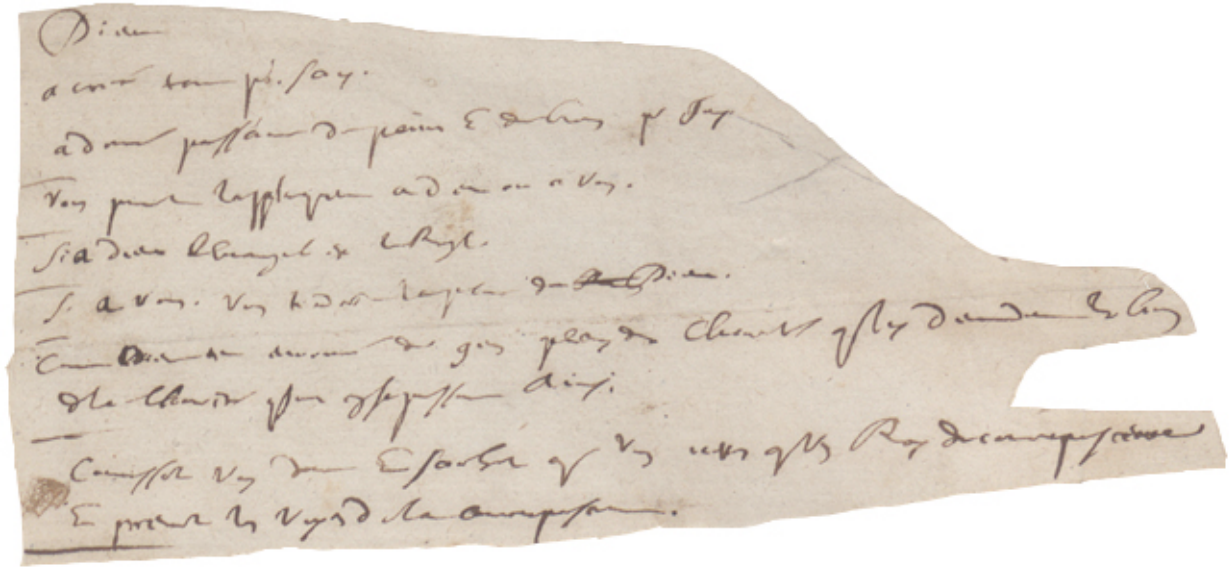 Dieu
a créé tout pr. soy.
a donné puissance de peine & de bien pr soy
Vous pouvez l'appliquer a dieu ou a vous.
Si a dieu l'Evangile est la Regle.
Si a vous. Vous tiendrez la place de Dieu.
Comme Dieu est environné de gens pleins de Charité qui luy demandent les biens
de la Charité qui sont en sa puissance Ainsi.
Connoissez vous donc & sachez que vous n'estes qu'un Roy de concupiscence
& prenez les voyes de la concupiscence.